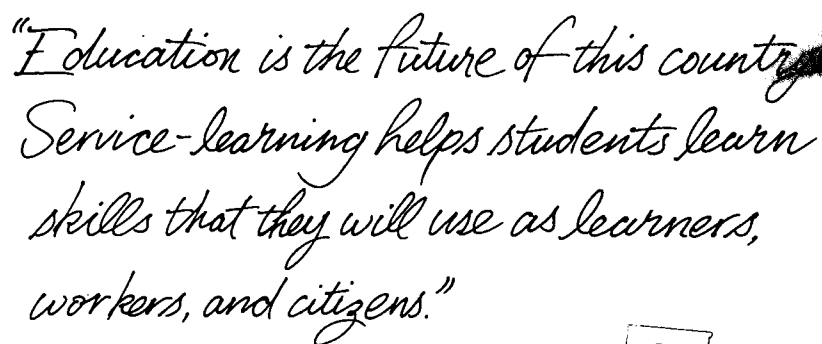 "Education is the future of this country
Service-learning helps students learn
skills that they will use as learners,
workers, and citizens."